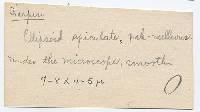 Ellipsoid apiculate, pale-yellowish
under the microscope, smooth
7-8 x 4-5 µ